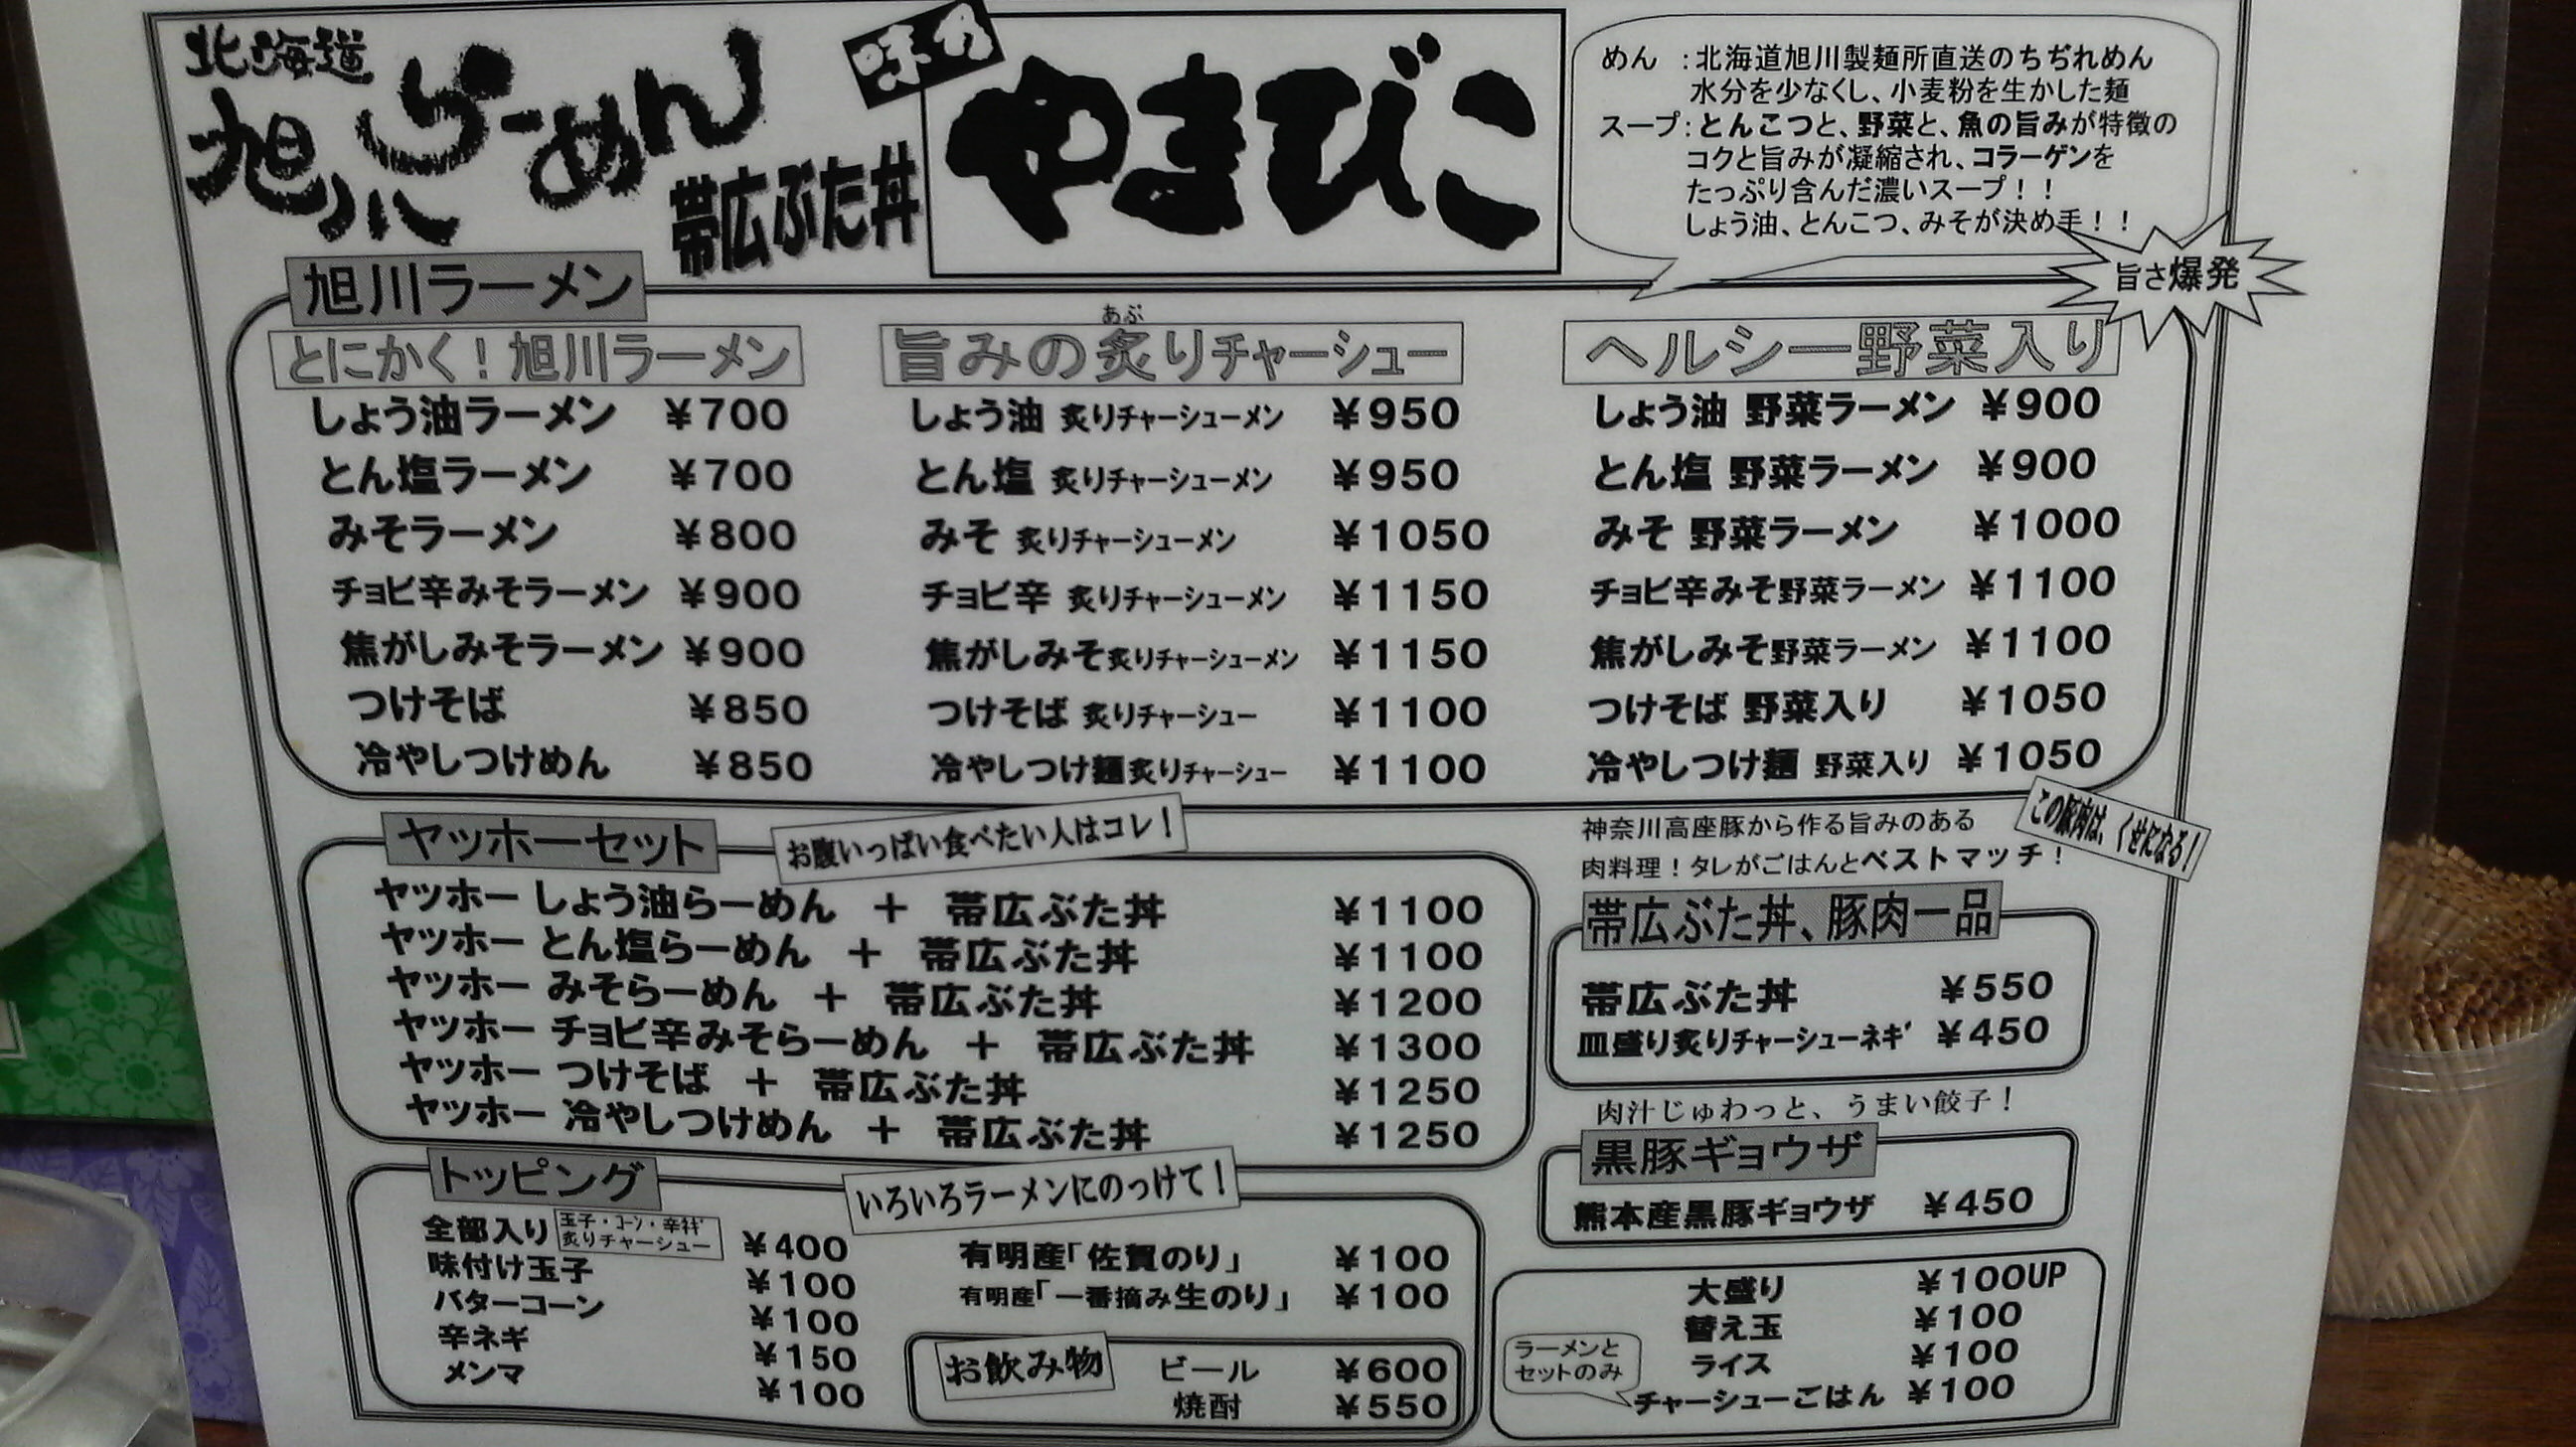 北海道
旭川らーめん
帯広ぶた丼
味の
やまびこ
めん :北海道旭川製麺所直送のちぢれめん
水分を少なくし、小麦粉を生かした麺
スープ:とんこつと、野菜と、魚の旨みが特徴の
コクと旨みが凝縮され、コラーゲンを
たっぷり含んだ濃いスープ!!
しょう油、とんこつ、みそが決め手!!
旨さ爆発
旭川ラーメン
とにかく!旭川ラーメン
しょう油ラーメン ¥700
とん塩ラーメン ¥700
みそラーメン ¥800
チョビ辛みそラーメン ¥900
焦がしみそラーメン ¥900
つけそば ¥850
冷やしつけめん ¥850
あぶ
旨みの炙りチャーシュー
しょう油 炙りチャーシューメン ¥950
とん塩 炙りチャーシューメン ¥950
みそ 炙りチャーシューメン ¥1050
チョビ辛 炙りチャーシューメン ¥1150
焦がしみそ炙りチャーシューメン ¥1150
つけそば 炙りチャーシュー ¥1100
冷やしつけ麺炙りチャーシュー ¥1100
ヘルシー野菜入り
しょう油 野菜ラーメン ¥900
とん塩 野菜ラーメン ¥900
みそ 野菜ラーメン ¥1000
チョビ辛みそ野菜ラーメン ¥1100
焦がしみそ野菜ラーメン ¥1100
つけそば 野菜入り ¥1050
冷やしつけ麺 野菜入り ¥1050
ヤッホーセット
お腹いっぱい食べたい人はコレ!
ヤッホー しょう油らーめん + 帯広ぶた丼 ¥1100
ヤッホー とん塩らーめん + 帯広ぶた丼 ¥1100
ヤッホー みそらーめん + 帯広ぶた丼 ¥1200
ヤッホー チョビ辛みそらーめん + 帯広ぶた丼 ¥1300
ヤッホー つけそば + 帯広ぶた丼 ¥1250
ヤッホー 冷やしつけめん + 帯広ぶた丼 ¥1250
神奈川高座豚から作る旨みのある
肉料理!タレがごはんとベストマッチ!
この豚肉は、くせになる!
帯広ぶた丼、豚肉一品
帯広ぶた丼 ¥550
皿盛り炙りチャーシューネギ ¥450
肉汁じゅわっと、うまい餃子!
黒豚ギョウザ
熊本産黒豚ギョウザ ¥450
トッピング
いろいろラーメンにのっけて!
全部入り 玉子・コーン・辛ネギ
炙りチャーシュー ¥400
味付け玉子 ¥100
バターコーン ¥100
辛ネギ ¥150
メンマ ¥100
有明産「佐賀のり」 ¥100
有明産「一番摘み生のり」 ¥100
お飲み物
ビール ¥600
焼酎 ¥550
大盛り ¥100UP
替え玉 ¥100
ライス ¥100
チャーシューごはん ¥100
ラーメンと
セットのみ